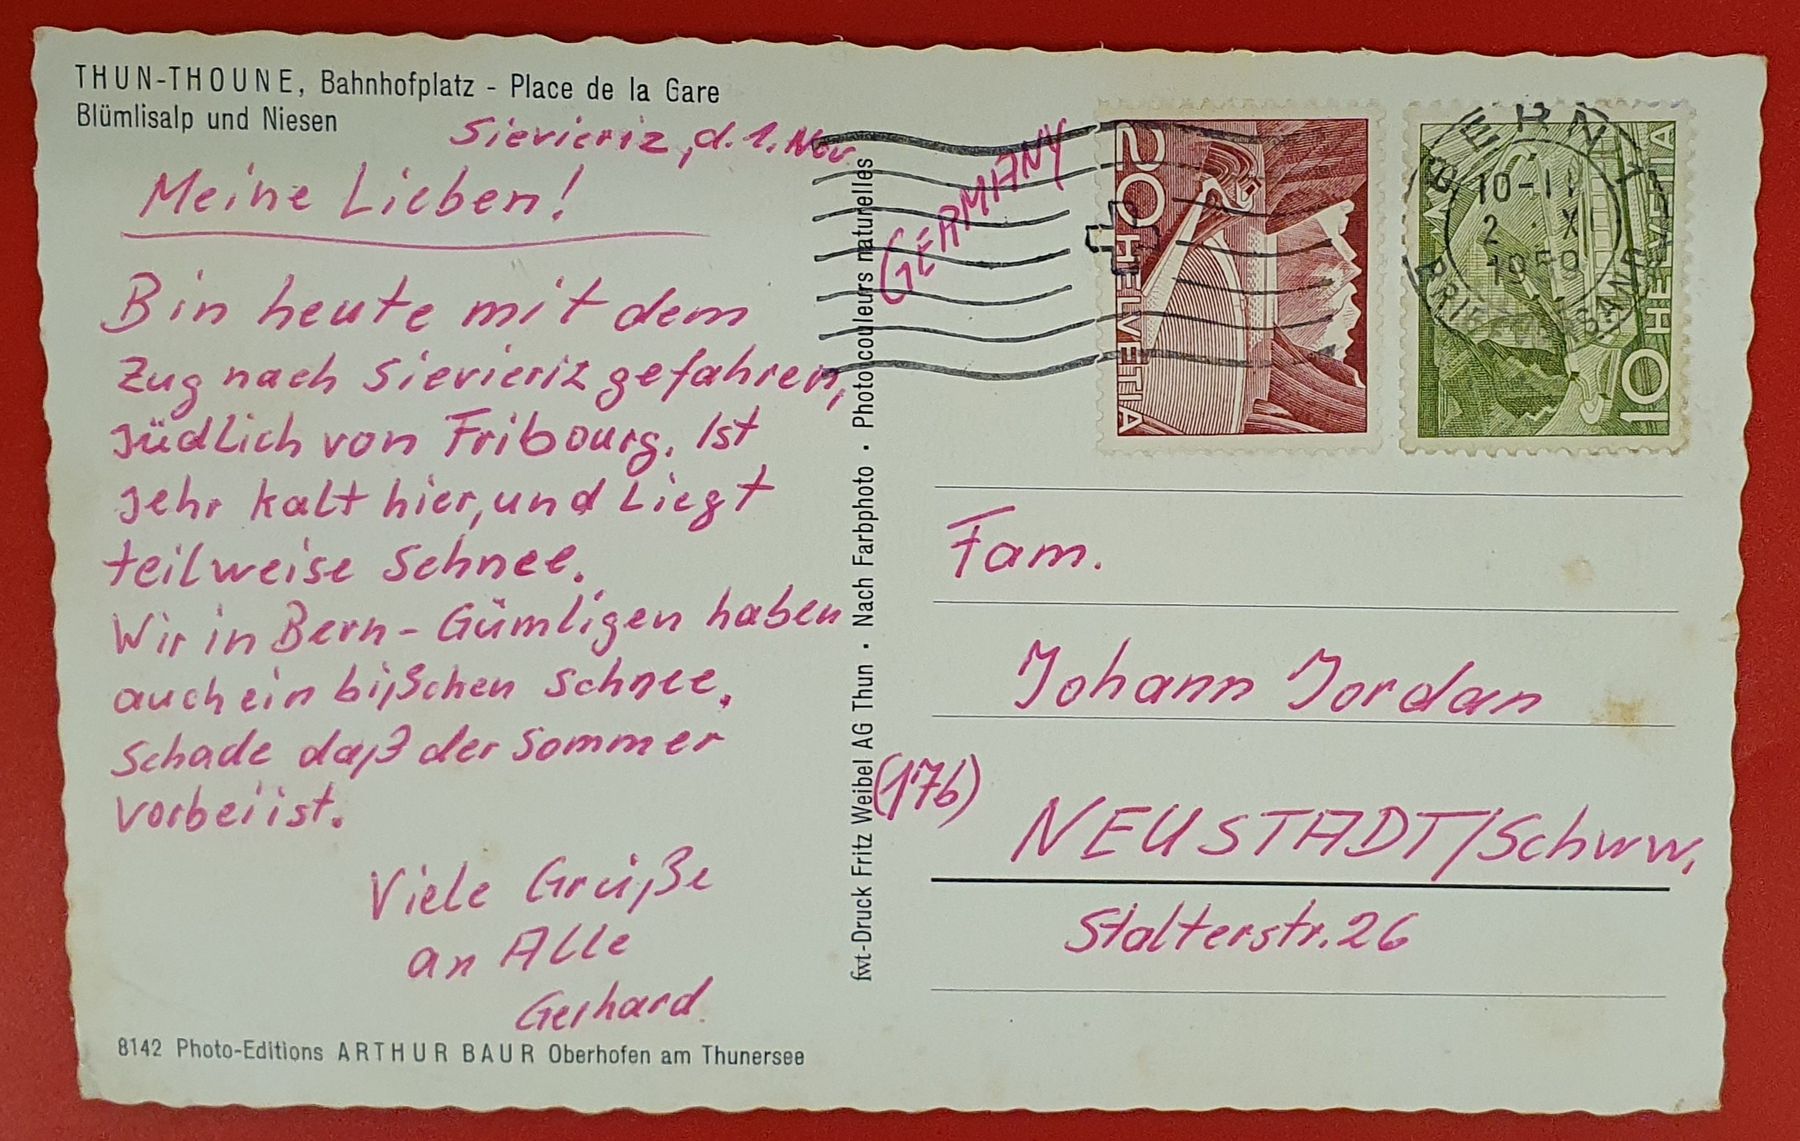 THUN-THOUNE, Bahnhofplatz - Place de la Gare
Blümlisalp und Niesen
Sievieriz, d. 1. Nov.
Meine Lieben!
Bin heute mit dem
Zug nach Sievieriz gefahren,
südlich von Fribourg. Ist
sehr kalt hier, und liegt
teilweise Schnee.
Wir in Bern-Gümligen haben
auch ein bißchen Schnee.
Schade daß der Sommer
vorbei ist.
Viele Grüße
an Alle
Gerhard.
8142 Photo-Editions ARTHUR BAUR Oberhofen am Thunersee
fwt-Druck Fritz Weibel AG Thun · Nach Farbphoto · Photocouleurs naturelles
GERMANY
20 HELVETIA
10 HELVETIA
BERN 1
10-11
2.XI
1959
Fam.
Johann Jordan
(17b)
NEUSTADT/Schww.
Stalterstr. 26